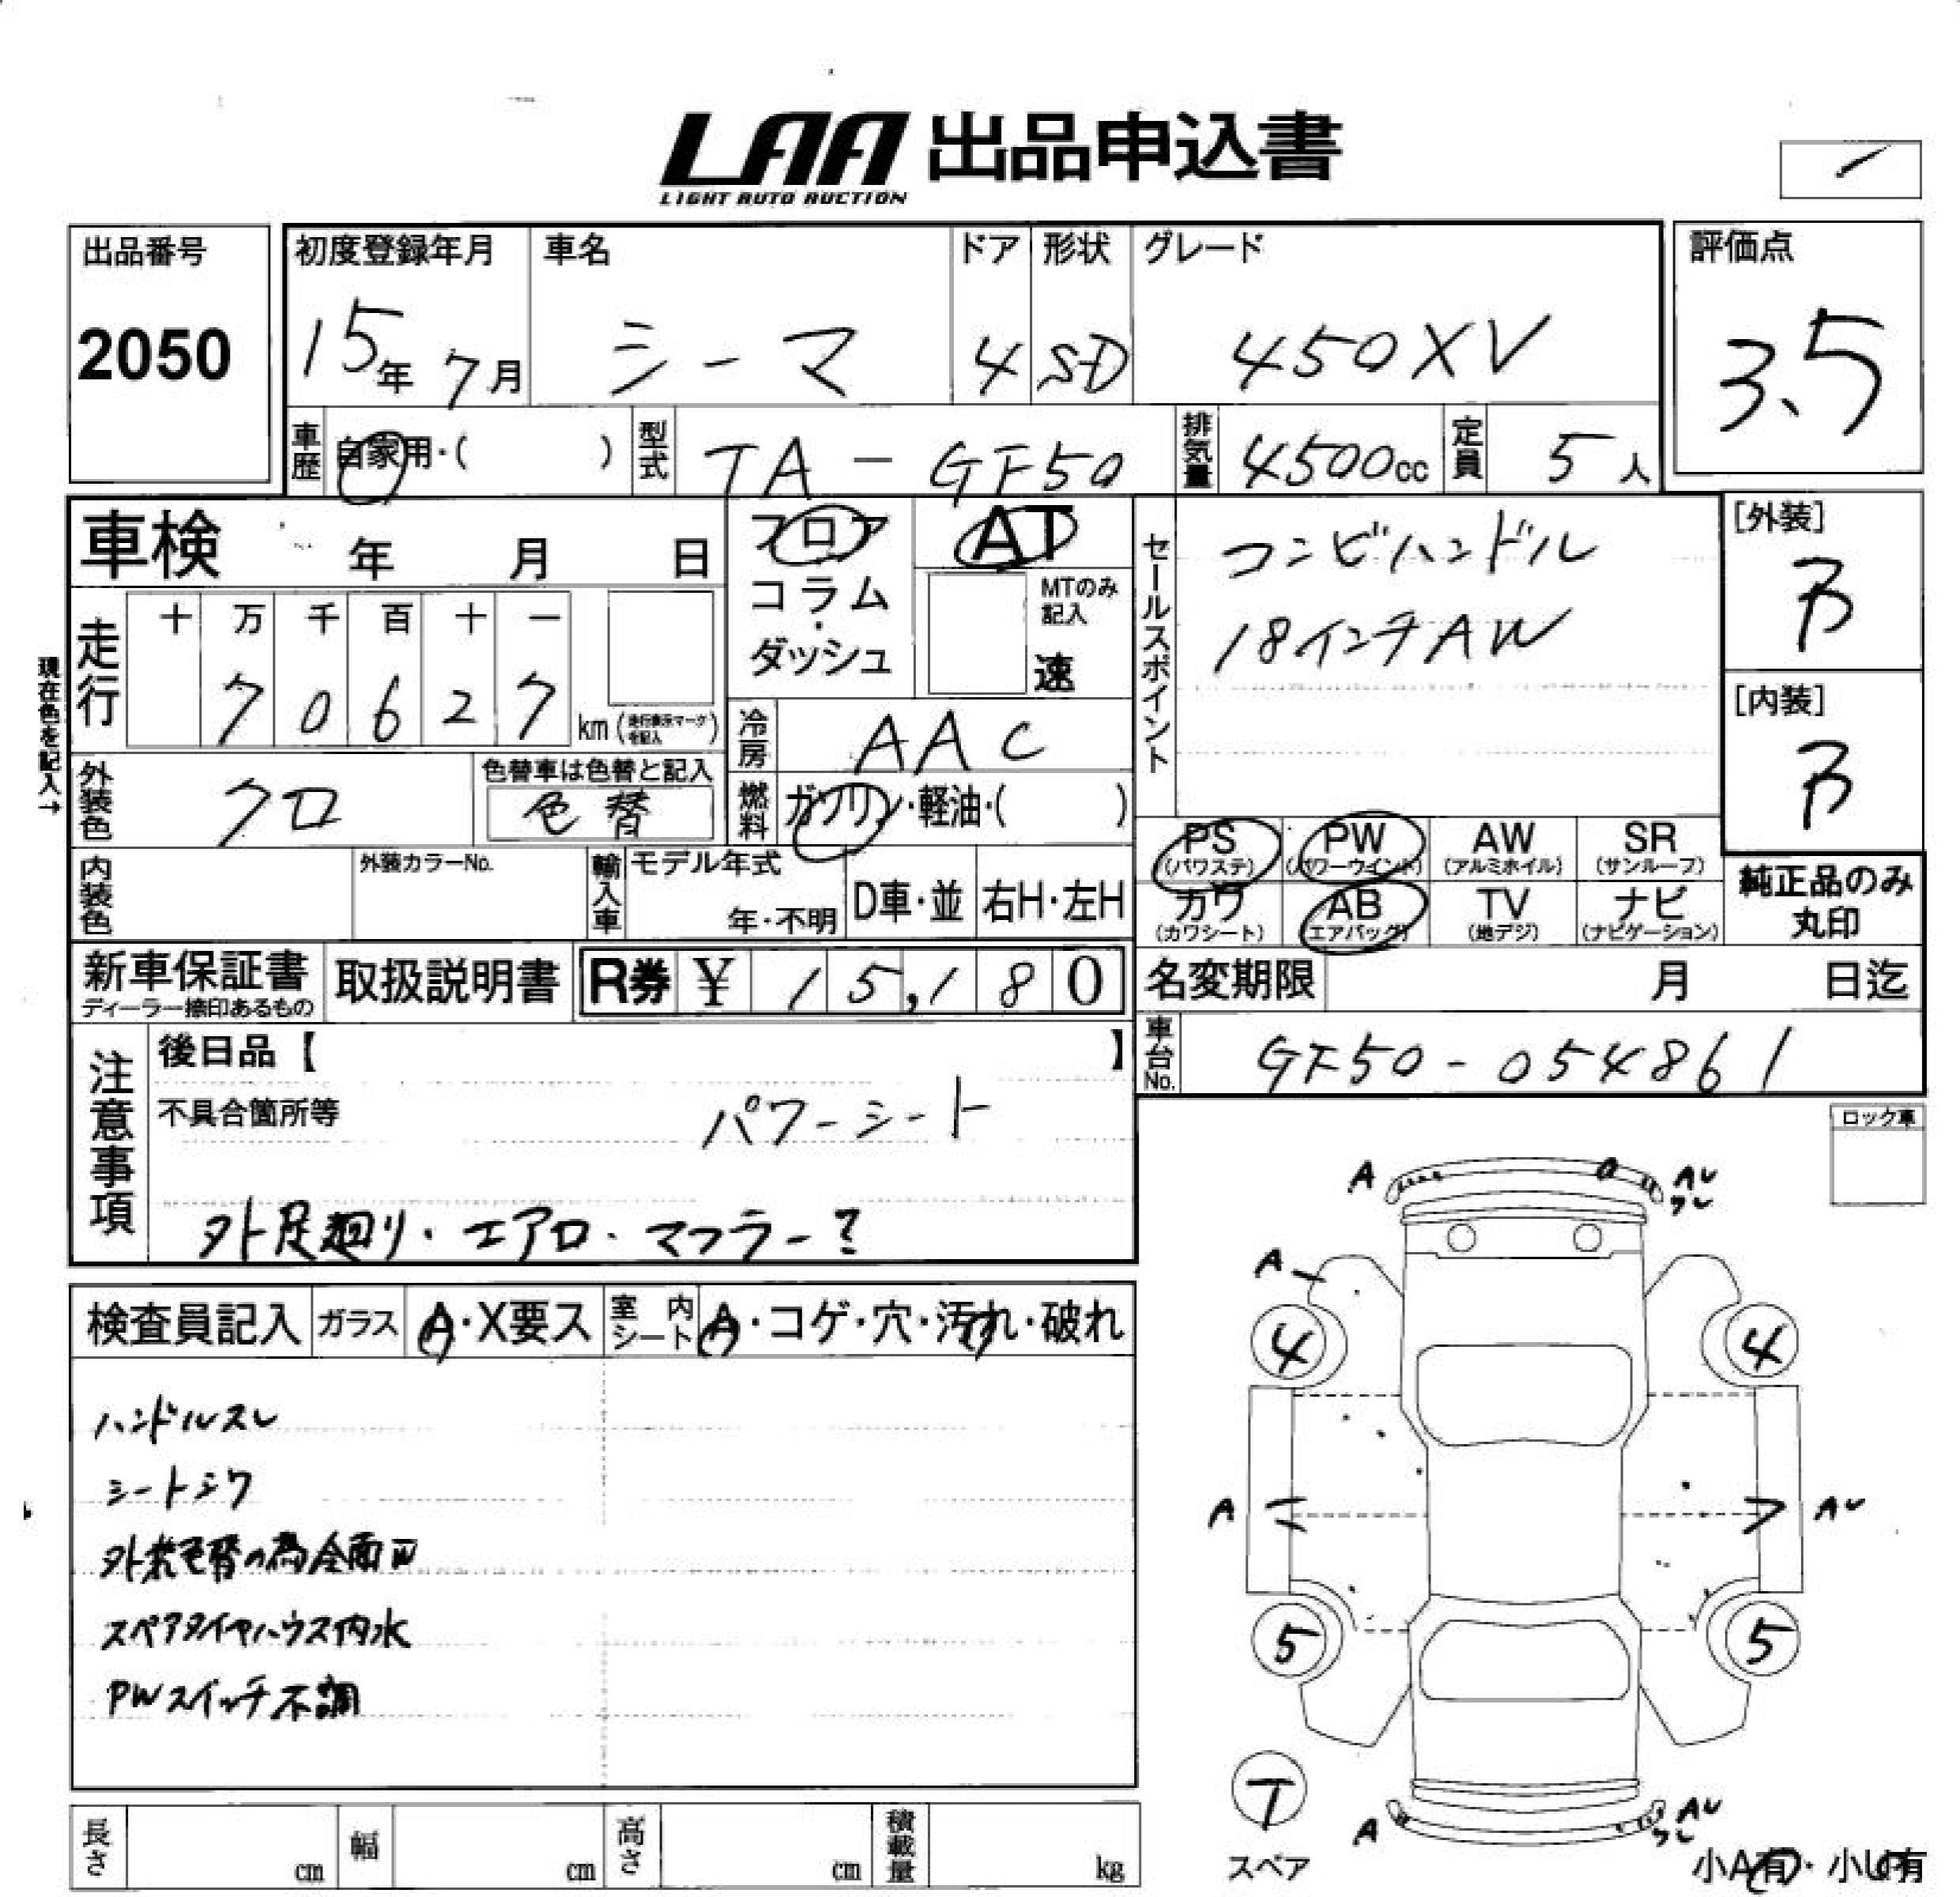 LAA 出品申込書
LIGHT AUTO AUCTION
出品番号
2050
初度登録年月
15年 7月
車名
シーマ
ドア
4
形状
SD
グレード
450XV
評価点
3.5
車歴
自家用・( )
型式
TA-GF50
排気量
4500cc
定員
5人
車検 年 月 日
フロア
コラム
・
ダッシュ
AT
MTのみ
記入
速
セールスポイント
コンビハンドル
18インチAW
[外装]
B
[内装]
B
現在色を記入→
走行
十 万 千 百 十 一
7 0 6 2 7
km (走行表示マークを記入)
冷房
AAC
外装色
クロ
色替車は色替と記入
色替
燃料
ガソリン・軽油・( )
PS
(パワステ)
PW
(パワーウインド)
AW
(アルミホイル)
SR
(サンルーフ)
カワ
(カワシート)
AB
(エアバッグ)
TV
(地デジ)
ナビ
(ナビゲーション)
純正品のみ
丸印
内装色
外装カラーNo.
輸入車
モデル年式
年・不明
D車・並
右H・左H
新車保証書
ディーラー捺印あるもの
取扱説明書
R券 ¥ 15,180
名変期限 月 日迄
車台No.
GF50-054861
注意事項
後日品【 】
不具合箇所等
パワーシート
外足廻り・エアロ・マフラー?
ロック車
検査員記入
ガラス
A・X要ス
室内シート
A・コゲ・穴・汚れ・破れ
ハンドルスレ
シートシワ
外装色替の為全面W
スペアタイヤハウス内水
PWスイッチ不調
A
AU
ワレ
A
4
4
A
AU
5
5
T
スペア
A
AU
ワレ
小A有・小U有
長さ cm
幅 cm
高さ cm
積載量 kg